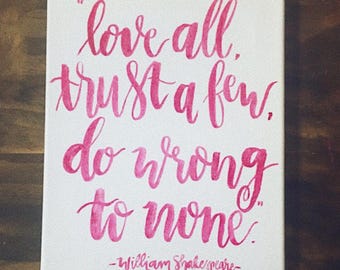 "love all,
trust a few,
do wrong
to none."
-William Shakespeare-